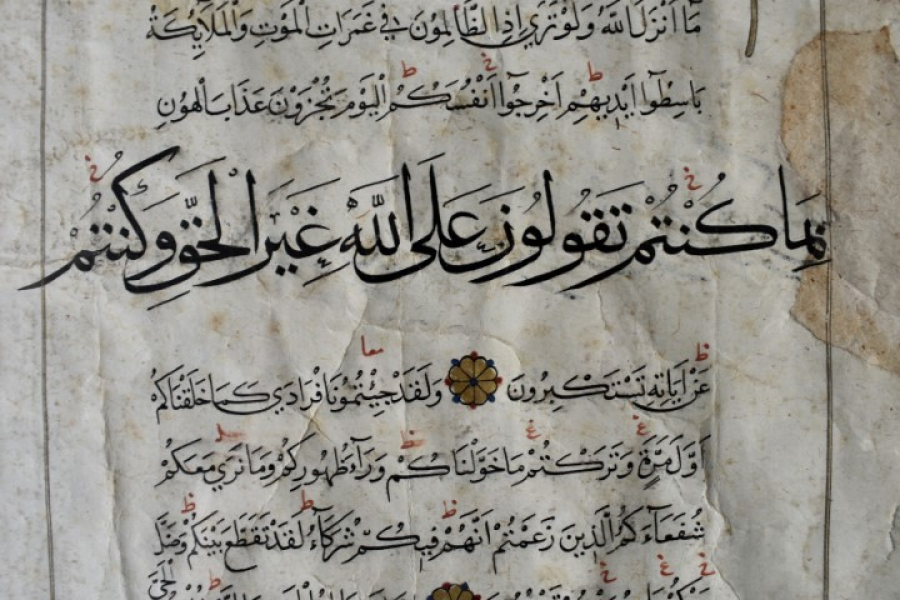 مَا أَنْزَلَ اللَّهُ وَلَوْ تَرَىٰ إِذِ الظَّالِمُونَ فِي غَمَرَاتِ الْمَوْتِ وَالْمَلَائِكَةُ
بَاسِطُوا أَيْدِيهِمْ أَخْرِجُوا أَنْفُسَكُمُ الْيَوْمَ تُجْزَوْنَ عَذَابَ الْهُونِ
بِمَا كُنْتُمْ تَقُولُونَ عَلَى اللَّهِ غَيْرَ الْحَقِّ وَكُنْتُمْ
عَنْ آيَاتِهِ تَسْتَكْبِرُونَ وَلَقَدْ جِئْتُمُونَا فُرَادَىٰ كَمَا خَلَقْنَاكُمْ
أَوَّلَ مَرَّةٍ وَتَرَكْتُمْ مَا خَوَّلْنَاكُمْ وَرَاءَ ظُهُورِكُمْ وَمَا نَرَىٰ مَعَكُمْ
شُفَعَاءَكُمُ الَّذِينَ زَعَمْتُمْ أَنَّهُمْ فِيكُمْ شُرَكَاءُ لَقَدْ تَقَطَّعَ بَيْنَكُمْ وَضَلَّ